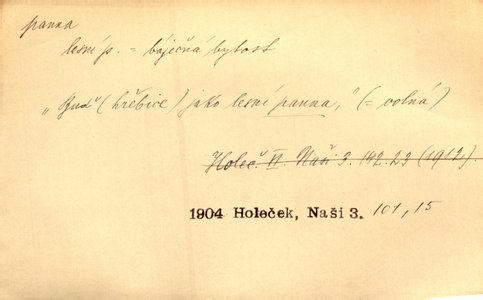 panna
lesní p. = báječná bytost
„Buď (hřebice) jako lesní panna," (= volná)
Holeč. II. Naši 3. 142.23 (1912).
1904 Holeček, Naši 3. 101, 15